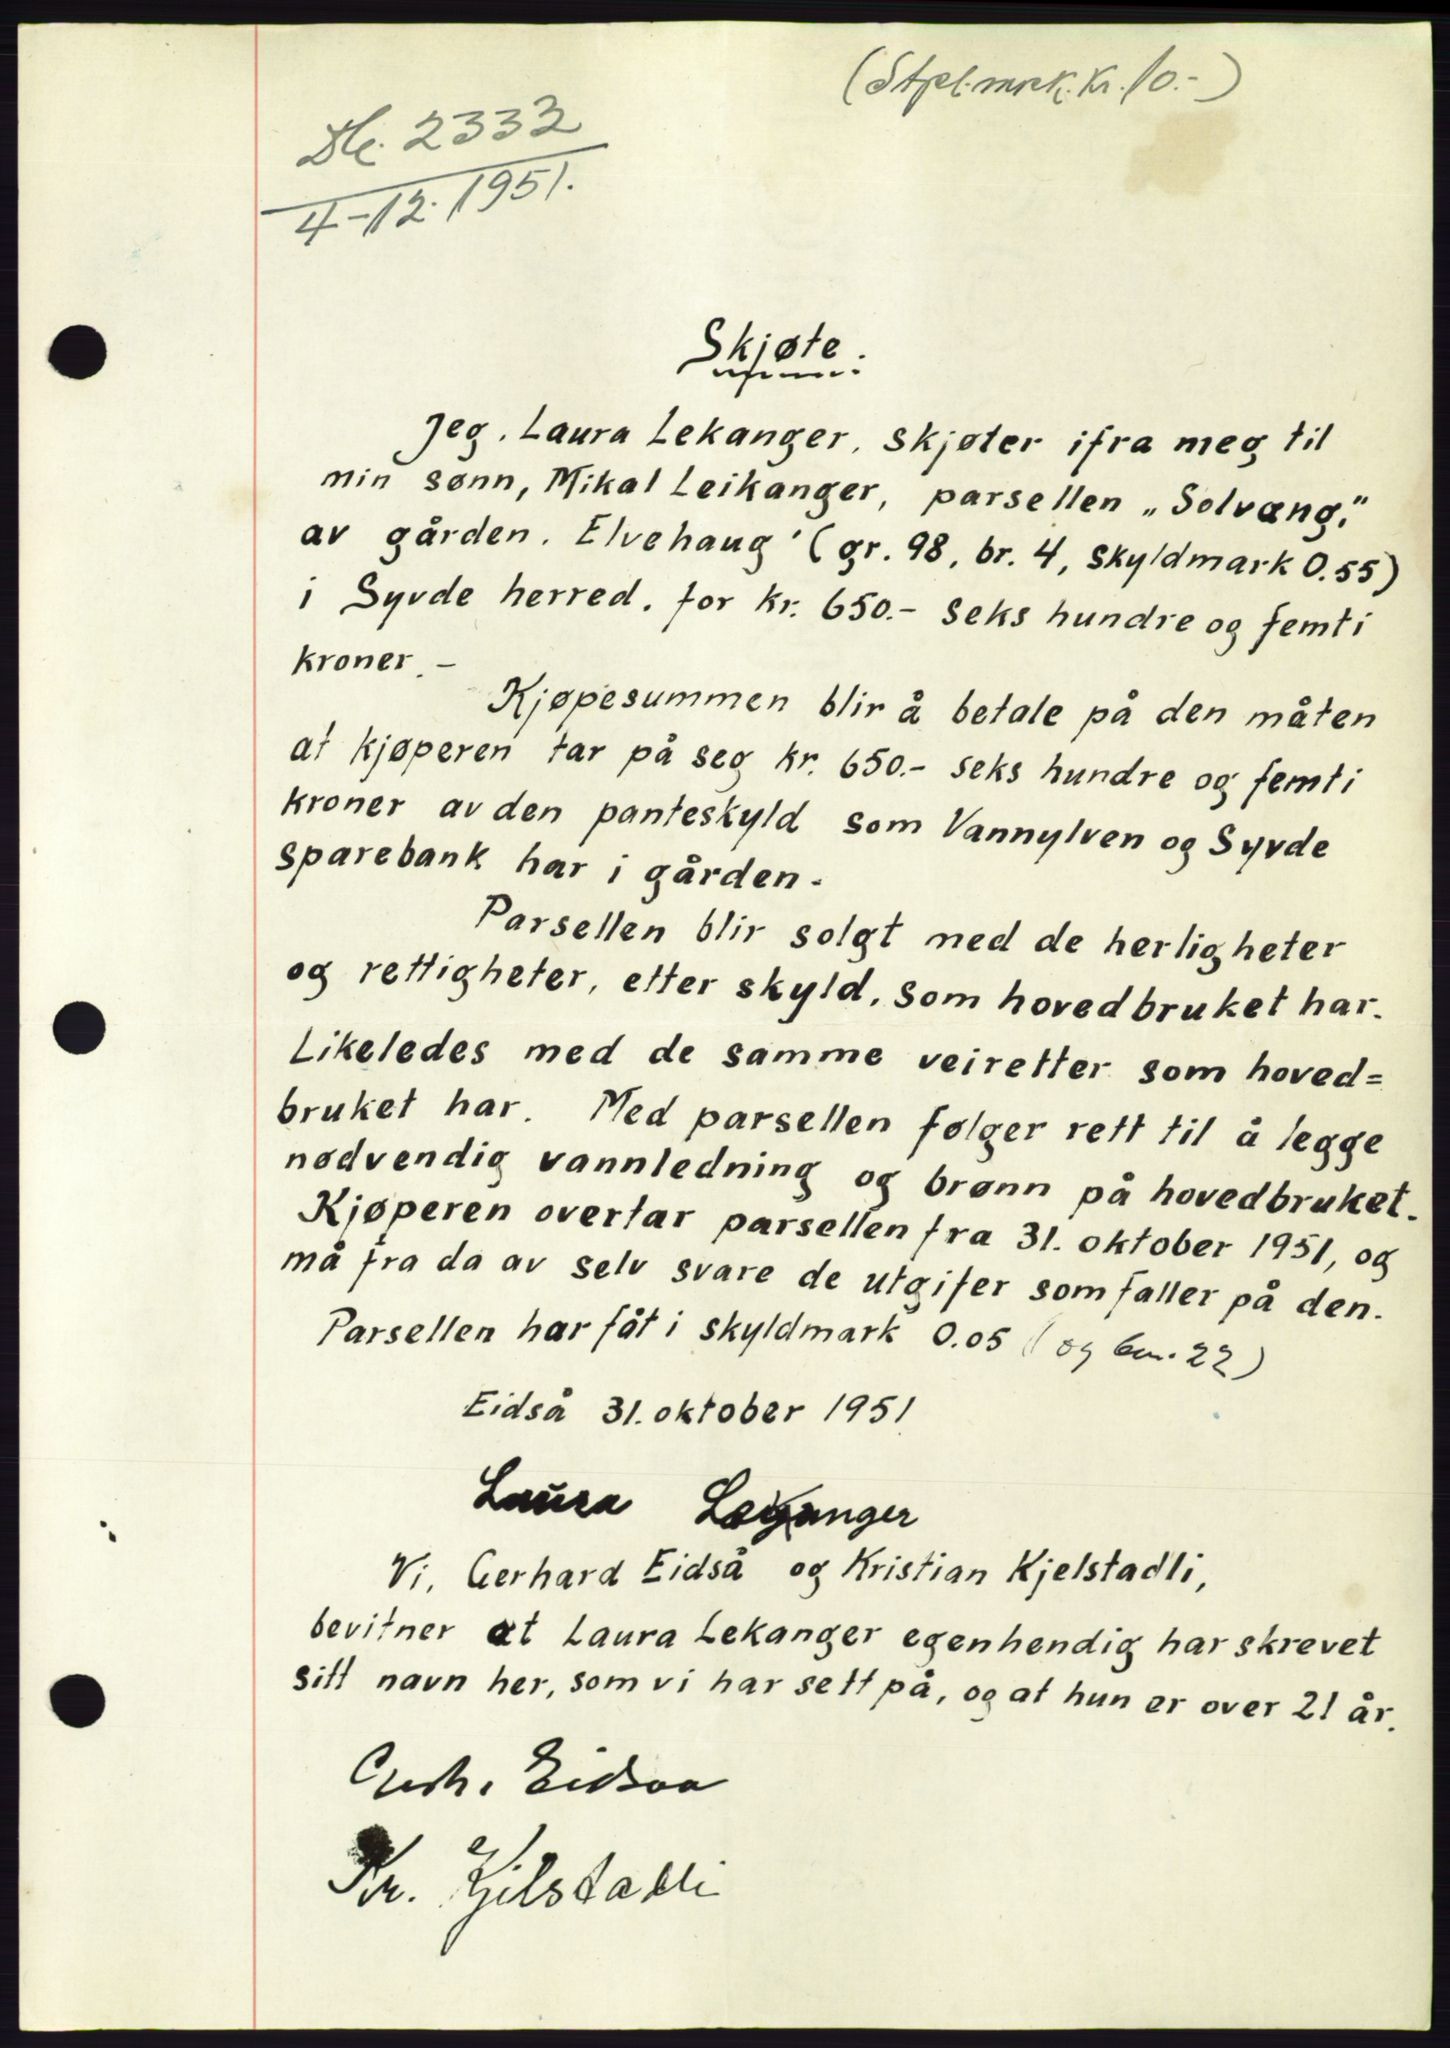 (Stpl.mrk. kr. 10.-)
Db. 2332
4-12.1951.
Skjøte.
Jeg, Laura Lekanger, skjøter ifra meg til
min sønn, Mikal Leikanger, parsellen „Solvang,"
av gården, Elvehaug' (gr. 98, br. 4, skyldmark 0.55)
i Syvde herred, for kr. 650.- seks hundre og femti
kroner.-
Kjøpesummen blir å betale på den måten
at kjøperen tar på seg kr. 650.- seks hundre og femti
kroner av den panteskyld som Vannylven og Syvde
sparebank har i gården.
Parsellen blir solgt med de herligheter
og rettigheter, etter skyld, som hovedbruket har.
Likeledes med de samme veiretter som hoved=
bruket har. Med parsellen følger rett til å legge
nødvendig vannledning og brønn på hovedbruket.
Kjøperen overtar parsellen fra 31. oktober 1951, og
må fra da av selv svare de utgifer som faller på den.
Parsellen har fåt i skyldmark 0.05 (og bnr. 22)
Eidså 31. oktober 1951
Laura Lekanger
Vi, Gerhard Eidså og Kristian Kjelstadli,
bevitner at Laura Lekanger egenhendig har skrevet
sitt navn her, som vi har sett på, og at hun er over 21 år.
Gerh. Eidsaa
Kr. Kjelstadli